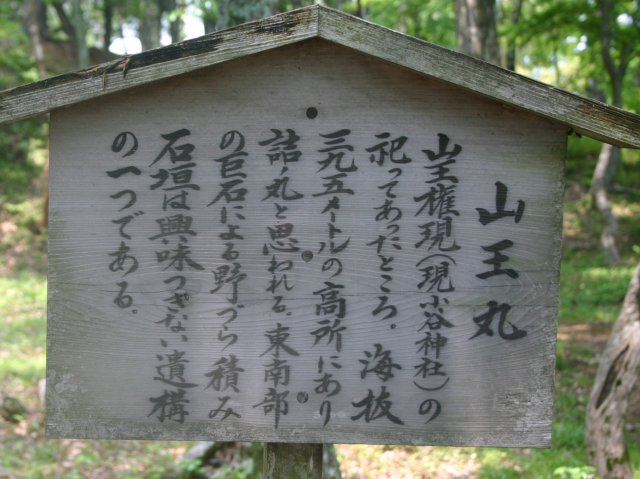 山王丸
山王権現（現小谷神社）の
祀ってあったところ。海抜
三九五メートルの高所にあり
詰ノ丸と思われる。東南部
の巨石による野づら積み
石垣は興味つきない遺構
の一つである。